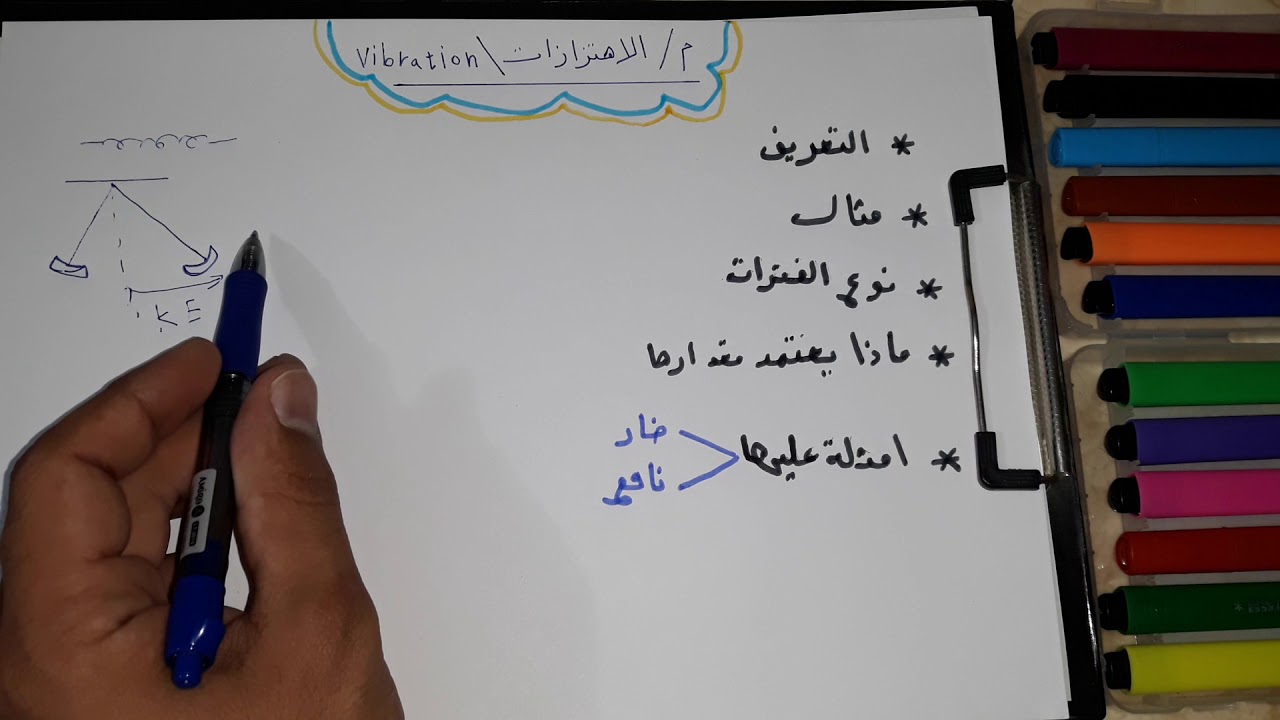 م/ الاهتزازات \ Vibration
* التعريف
* مثال
* نوع الفترات
* ماذا يعتمد مقدارها
* امثلة عليها
ضار
نافع
KE